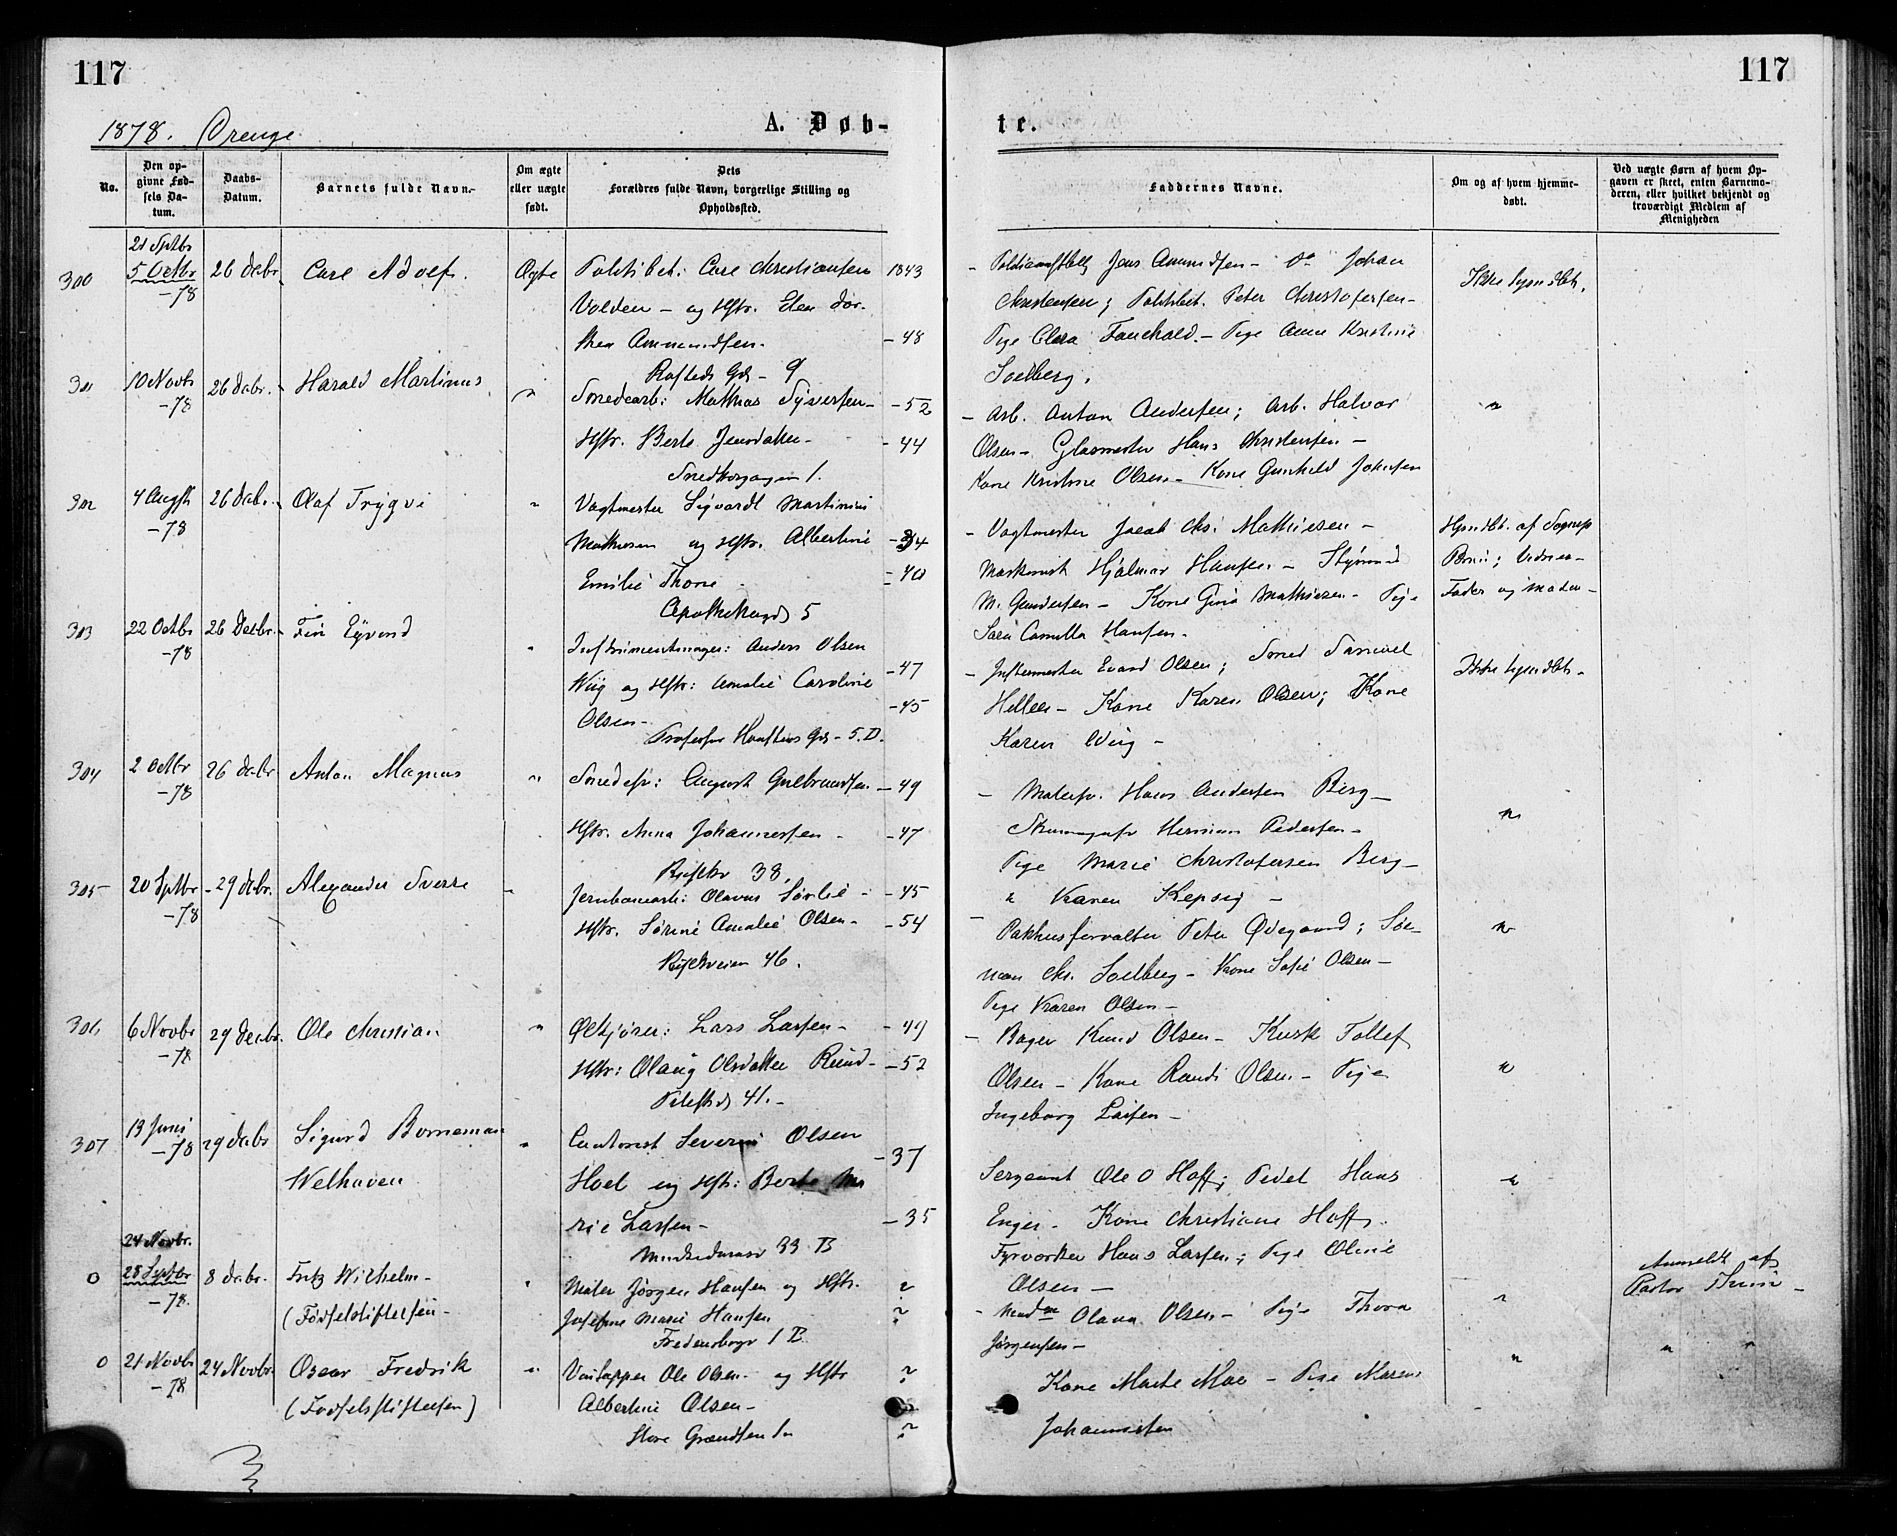 117
117
1878. Drenge.
A. Døb-
te.
No.
Den op-
givne Fød-
sels Da-
tum.
Daabs-
Datum.
Barnets fulde Navn.
Om ægte
eller uægte
født.
Dets
Forældres fulde Navn, borgerlige Stilling og
Opholdssted.
Faddernes Navne.
Om og af hvem hjemme-
døbt.
Ved uægte Børn af hvem Op-
gaven er skeet, enten Barnemo-
deren, eller hvilket bekjendt og
troværdigt Medlem af
Menigheden
300
21 Sptbr
5 Octbr
-78
26 Decbr.
Carl Adolf.
Ægte
Politibet: Carl Christiansen 1843
Volden - og Hstr. Elen Dor-
thea Ammundsen. - 48
Rosteds Gd - 9
Jens Ammundsen - Do Johan
Christensen; Politibet. Peter Christofersen -
Pige Clara Fauchald. - Pige Anne Kristine
Soelberg.
Ikke hjmdbt.
301
10 Novbr
-78
26 Decbr.
Harald Martinus
"
Snedkarb: Mathias Syversen - - 52
Hstr. Berte Jensdatter - - 44
Snedkergangen 1.
- Arb. Anton Andersen; Arb. Halvor
Olsen - Glasmester Hans Christensen -
Kone Kristine Olsen - Kone Gunhild Johnsen
"
302
4 Augst
-78
26 Decbr.
Olaf Trygve
"
Vagtmester Sigvardt Martinius
Mathiesen og Hstr. Albertine - 34
Emilie Thorne - - 40
5
- Vagtmester Jacob Chr. Mathiesen -
Maskinist Hjalmar Hansen - Styrmand
M. Gundersen - Kone Gina Mathiesen - Pige
Sara Camilla Hansen.
Hjmdbt. af Sognep
Brun; Vidner -
Fader og moder -
303
22 Octbr
-78
26 Decbr.
Fin Eyvind
"
Instrumentmager: Anders Olsen - 47
Wiig og Hstr: Amalie Caroline - 45
Olsen -
Professor Hansteens Gd - 5. D.
- Evard Olsen; Smed Samuel
Kone Karen Olsen; Kone
Karen Wiig -
Ikke hjmdbt. -
304
2 Octbr
-78
26 Decbr
Anton Magnus
"
Snedksv: August Gulbrandsen - 49
Hstr. Anna Johannessen - - 47
38.
- Malersv. Hans Andersen Berg -
Skomagersv Herman Pedersen -
Pige Marie Christofersen Berg -
" Karen
"
305
20 Sptbr
-78
- 29 Decbr.
Alexander Sverre
"
Jernbanearb: Olavus Sørlie - - 45
Hstr. Sørine Amalie Olsen - - 54
46.
Pakhusforvalter Peter Ødegaard; Sø-
mann Chr. Soelberg - Kone Sofie Olsen -
Pige Karen Olsen -
"
306
6 Novbr
-78
29 Decbr.
Ole Christian
"
Ølkjører: Lars Larsen - - 49
Hstr: Olaug Olsdatter Rund - - 52
Pilestd 41. -
- Bager Knud Olsen - Kusk Tollef
Olsen - Kone Randi Olsen - Pige
Ingeborg Larsen -
"
307
13 Juni
-78
29 Decbr
Sigurd Borneman
Welhaven
"
Cantorist Severin Olsen - 37
Hoel og Hstr: Berte Ma
rie Larsen - - 35
33 B
Sergeant Ole O Hoff; Pedel Hans
Enger - Kone Christiane Hoff.
Fyrvorker Hans Larsen; Pige Oline
Olsen -
"
0
24 Novbr.
28 Septbr
-78.
8 Decbr.
Fritz Wilhelm -
(Fødselstiftelsen -
"
Maler Jørgen Hansen og Hstr. ?
Josefine Marie Hansen ?
1 B.
- Madm Olava Olsen - Pige Thora
Jørgensen -
"
Anmeldt af
Pastor
0
21 Novbr
-78
24 Novbr
Oscar Fredrik
(Fødselsstiftelsen)
"
Vintapper Ole Olsen - og Hstr ?
Albertine Olsen -
Store Grændsen ?
Kone Marte Moe - Pige Maren
Johannessen
"
" "